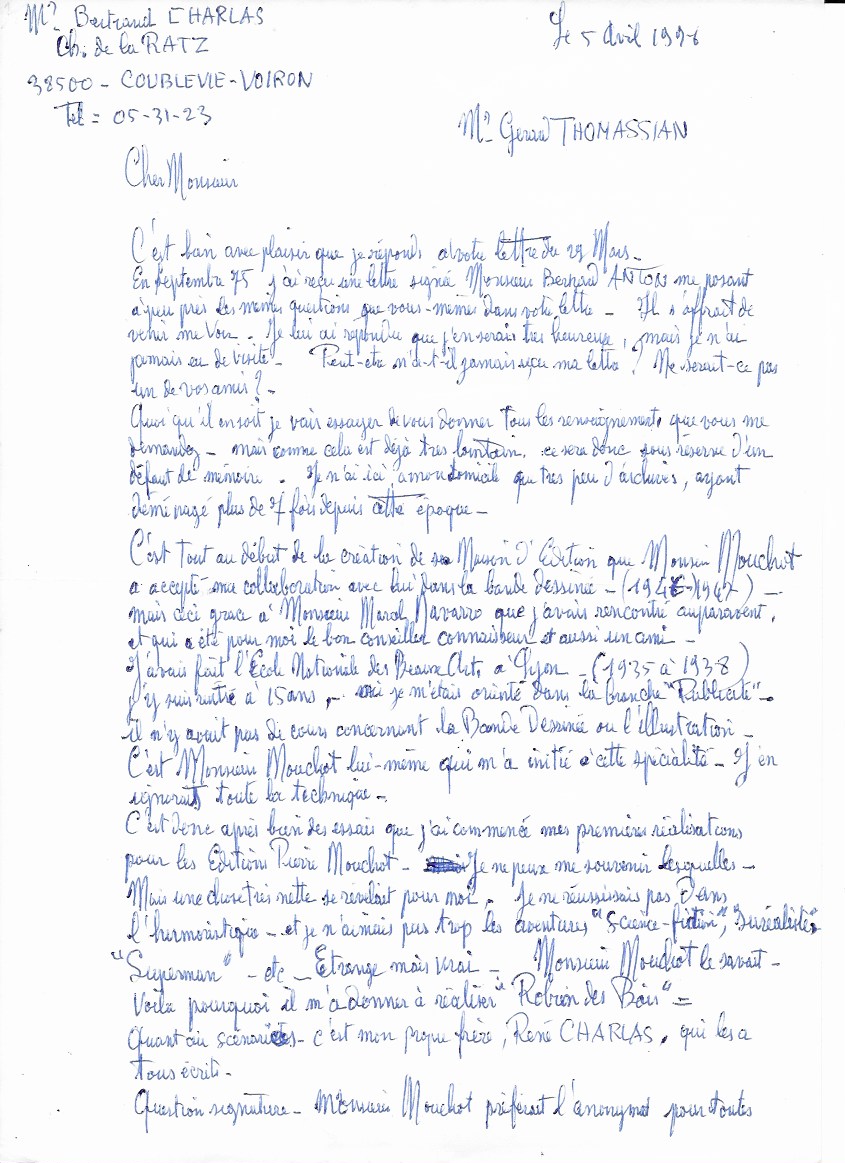 Mr Bertrand CHARLAS
Ch. de la RATZ
38500 - COUBLEVIE-VOIRON
Tel = 05-31-23
Le 5 Avril 1996
Mr Gerard THOMASSIAN
Cher Monsieur
C'est bien avec plaisir que je réponds a votre lettre du 29 Mars -
En Septembre 75 j'ai reçu une lettre signée Monsieur Bernard ANTON me posant
à peu près les memes questions que vous-mêmes dans votre lettre - Il s'offrait de
venir me voir. Je lui ai répondu que j'en serais très heureuse, mais je n'ai
jamais eu de visite - Peut-etre n'a-t-il jamais reçu ma lettre ? Ne serait-ce pas
un de vos amis ? -
Quoi qu'il en soit je vais essayer de vous donner tous les renseignements que vous me
demandez - mais comme cela est déjà très lointain, ce sera donc sous réserve d'un
défaut de mémoire. Je n'ai ici, a mon domicile que très peu d'archives, ayant
déménagé plus de 7 fois depuis cette époque -
C'est tout au début de la création de sa Maison d'Edition que Monsieur Mouchot
a accepté ma collaboration avec lui dans la bande dessinée - (1946-1947) -
mais ceci grace à Monsieur Marcel Navarro que j'avais rencontré auparavent,
et qui a été pour moi le bon conseiller connaisseur et aussi un ami -
J'avais fait l'Ecole Nationale des Beaux Arts à Lyon - (1935 à 1938)
j'y suis rentré à 15 ans, - je m'étais orienté dans la branche "Publicité" -
il n'y avait pas de cours concernant la Bande Dessinée ou l'illustration -
C'est Monsieur Mouchot lui-même qui m'a initié à cette spécialité - J'en
ignorais toute la technique -
C'est donc après bien des essais que j'ai commencé mes premières réalisations
pour les Editions Pierre Mouchot - Je ne peux me souvenir lesquelles -
Mais une chose très nette se révélait pour moi. Je ne réussissais pas dans
l'humoristique - et je n'aimais pas trop les aventures "Science-fiction", "suréaliste"
"Superman" - etc - Etrange mais vrai - Monsieur Mouchot le savait -
Voilà pourquoi il m'a donner à réaliser "Robin des Bois" -
Quant au scénarios - c'est mon propre frère, René CHARLAS, qui les a
tous écrits -
Question signature - Monsieur Mouchot préférait l'anonymat pour toutes